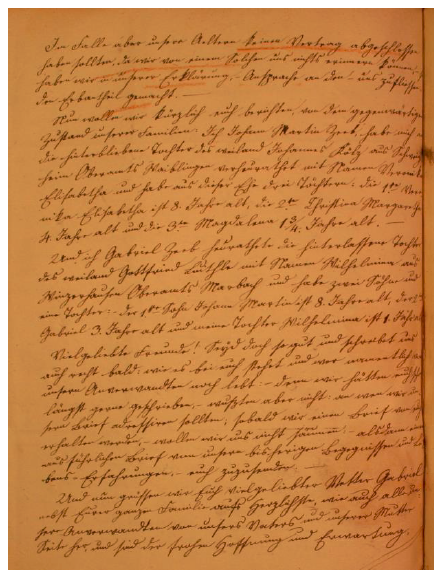 Im Falle aber unsere Aeltern keinen Vertrag abgeschlossen
haben sollten, da wir von einem solchen uns nichts erinnern können,
haben wir in unserer Erklärung, Ansprache an den uns zufließen
den Erbantheil gemacht. —
Nun wollen wir kürzlich euch berichten, von dem gegenwärtigen
Zustand unserer Familien: Ich Johann Martin Zeeb, habe mich
die hinterbliebene Tochter des weiland Johannes aus
heim Oberamts Waiblingen verheurathet mit Namen
Elisabetha und habe aus dieser Ehe drei Töchtern: die 1te
Elisabetha ist 8. Jahr alt, die 2te Christina Margaretha
4. Jahr alt und die 3te Magdalena 1¾. Jahr alt. —
Und ich Gabriel Zeeb heirathete die hinterlassene Tochter
des weiland Gottfried mit Namen Wilhelmina aus
Winzerhausen Oberamts Marbach und habe zwei Söhn und
eine Tochter: der 1te Sohn Johann Martin ist 8. Jahr alt, der 2te
Gabriel 3. Jahr alt und meine Tochter Wilhelmina ist 1. Jahr
Vielgeliebte Freunde! Seyd doch so gut und schreibet uns
auch recht bald, wie es bei euch stehet und wer namentlich
unsern Anverwandten noch lebt: denn wir hätten
längst gerne geschrieben, wußten aber nicht an wen wir
sern Brief adressiren sollten, sobald wir einen Brief von
erhalten werden, wollen wir uns nicht säumen, alsdann
ausführlichen Brief von unsern bisherigen Begegnissen und
bens-Erfahrungen, euch zuzusenden. —
Und nun grüssen wir Euch vielgeliebter Vetter Gabriel
nebst Eurer ganzen Familie aufs herzlichste, wie auch alle
ser Anverwandten von unsers Vaters und unserer Mutter
Seite her, und sind der frohen Hoffnung und Erwartung.